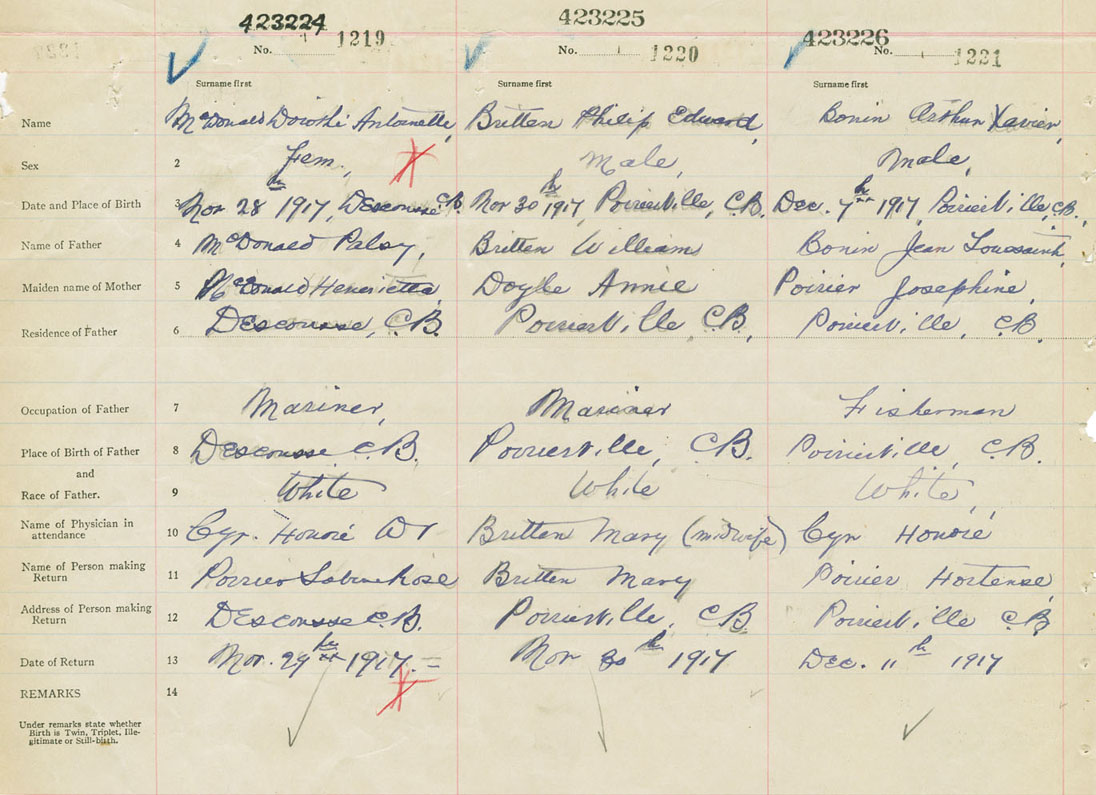 423224 423225 423226
No. 1219 No. 1220 No. 1221
Surname first Surname first Surname first
Name McDonald Dorothi Antoinette, Britten Philip Edward, Bonin Arthur Xavier,
Sex 2 Fem, Male, Male,
Date and Place of Birth 3 Nov 28th 1917, Descousse C.B. Nov 30th 1917, Poirierville, C.B. Dec. 7th 1917, Poirierville, C.B.
Name of Father 4 McDonald Palsy, Britten William Bonin Jean Toussaint,
Maiden name of Mother 5 McDonald Henrietta, Doyle Annie Poirier Josephine,
Residence of Father 6 Descousse, C.B. Poirierville C.B, Poirierville, C.B.
Occupation of Father 7 Mariner, Mariner Fisherman
Place of Birth of Father 8 Descousse C.B. Poirierville, C.B. Poirierville, C.B.
and
Race of Father. 9 White White White,
Name of Physician in 10 Cyr. Honoré Britten Mary (midwife) Cyr Honoré
attendance
Name of Person making 11 Poirier Sabine Rose Britten Mary Poirier Hortense,
Return
Address of Person making 12 Descousse C.B. Poirierville, C.B. Poirierville C.B.
Return
Date of Return 13 Nov. 29th 1917. Nov 30th 1917 Dec. 11th 1917
REMARKS 14
Under remarks state whether
Birth is Twin, Triplet, Ille-
gitimate or Still-birth.